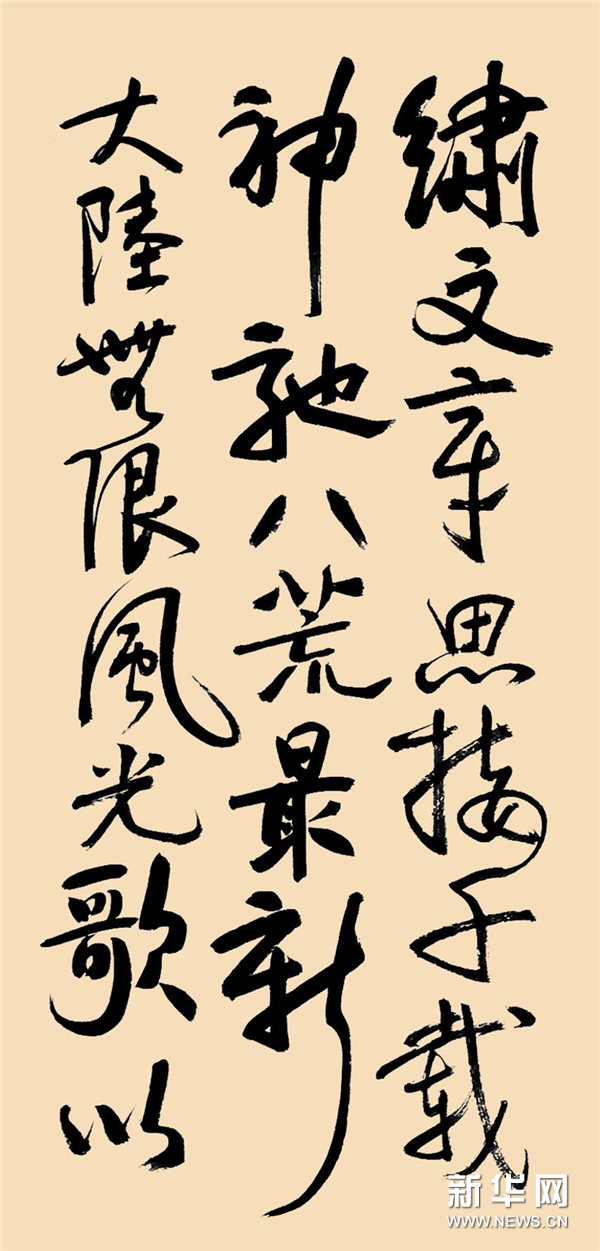 繡文章思接千載
神馳八荒最新
大陸無限風光歌以
新华网
WWW.NEWS.CN